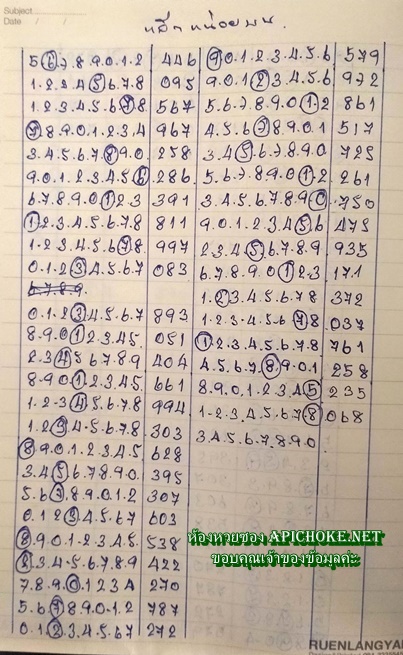 Subject
Date
หลักหน่วยบน.
5.6.7.8.9.0.1.2 446
1.2.3.4.5.6.7.8 095
1.2.3.4.5.6.7.8 567
7.8.9.0.1.2.3.4 967
3.4.5.6.7.8.9.0. 258
9.0.1.2.3.4.5.6. 286
6.7.8.9.0.1.2.3 391
1.2.3.4.5.6.7.8 811
1.2.3.4.5.6.7.8 997
0.1.2.3.4.5.6.7 083
6.7.8.9.
0.1.2.3.4.5.6.7 893
8.9.0.1.2.3.4.5. 051
2.3.4.5.6.7.8.9 404
8.9.0.1.2.3.4.5. 661
1.2.3.4.5.6.7.8 994
1.2.3.4.5.6.7.8 303
8.9.0.1.2.3.4.5 628
3.4.5.6.7.8.9.0. 395
5.6.7.8.9.0.1.2 307
0.1.2.3.4.5.6.7 603
8.9.0.1.2.3.4.5. 538
2.3.4.5.6.7.8.9 422
7.8.9.0.1.2.3.4 270
5.6.7.8.9.0.1.2 787
0.1.2.3.4.5.6.7 272
9.0.1.2.3.4.5.6 579
9.0.1.2.3.4.5.6 972
5.6.7.8.9.0.1.2 861
4.5.6.7.8.9.0.1 517
3.4.5.6.7.8.9.0 725
5.6.7.8.9.0.1.2 261
3.4.5.6.7.8.9.0 750
9.0.1.2.3.4.5.6 475
2.3.4.5.6.7.8.9 935
6.7.8.9.0.1.2.3 171
1.2.3.4.5.6.7.8 372
1.2.3.4.5.6.7.8 037
1.2.3.4.5.6.7.8 761
4.5.6.7.8.9.0.1 258
8.9.0.1.2.3.4.5 235
1.2.3.4.5.6.7.8 068
3.4.5.6.7.8.9.0
ห้องหวยซอง APICHOKE.NET
ขอบคุณเจ้าของข้อมูลค่ะ
RUENLANGYA